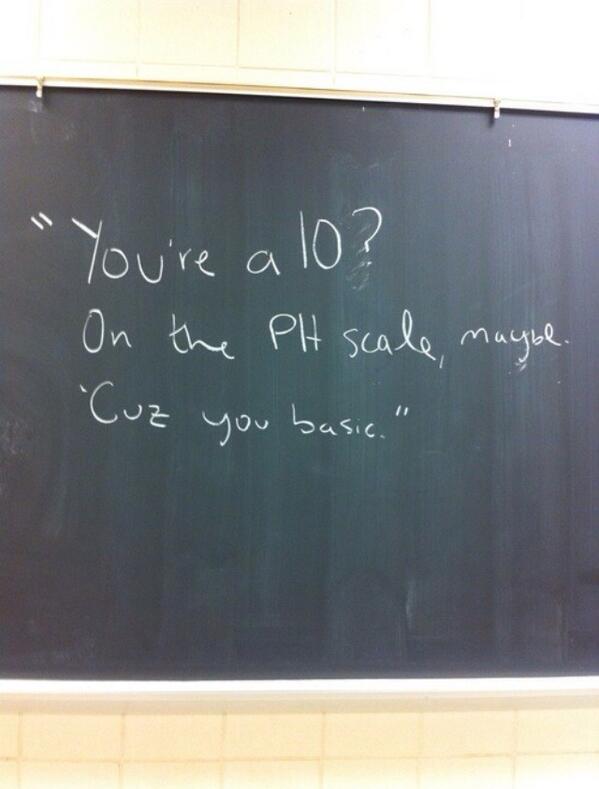 "You're a 10?
On the PH scale, maybe.
'Cuz you basic."